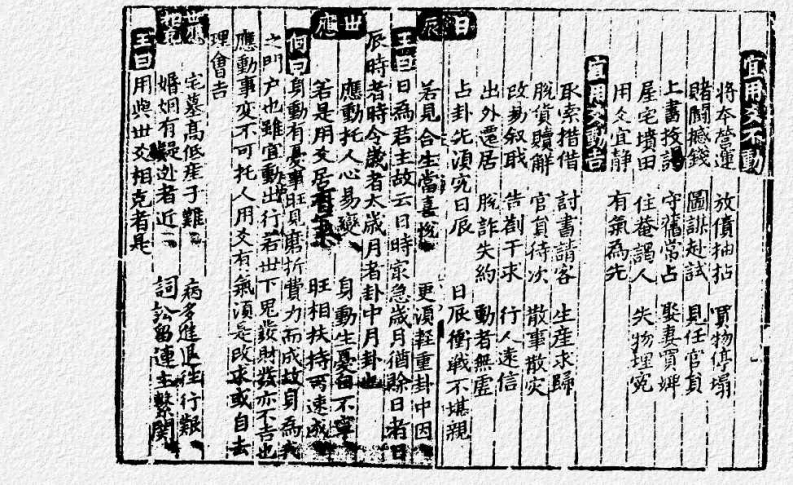 宜用爻不動
將本營運 放債抽拈 買物停塌
賭鬭攧錢 圖謀赴試 見任官員
上書投 守舊常占 娶妻買婢
屋宅墳田 住菴謁人 失物理寃
用爻宜靜 有氣為先
宜用爻動吉
取索措借 討書請客 生産求歸
脫貨贖解 官員待次 散事散灾
改易叙職 告劄干求 行人遠信
出外還居 脫詐失約 動者無虛
占卦先須究日辰 日辰衝戰不堪親
日辰
若見合生當喜悅 更須輕重卦中因
王曰日為君主故云日時家急歲月猶餘日者日
辰時者時今歲者太歲月者卦中月卦也
世應
應動托人心易變 身動生憂自不寧
若是用爻居 旺相扶持 速成
何曰身動有憂事旺見磨折費力而成故身為
之門户也雖宜動出行若世下鬼發財發亦不吉也
應動事変不可托人用爻有氣須是改求或自去
理會吉
世應相克
宅墓高低産于難 病多進退往行艱
婚姻有疑 者近 詞訟留連主繫関
王曰用與世爻相克者是